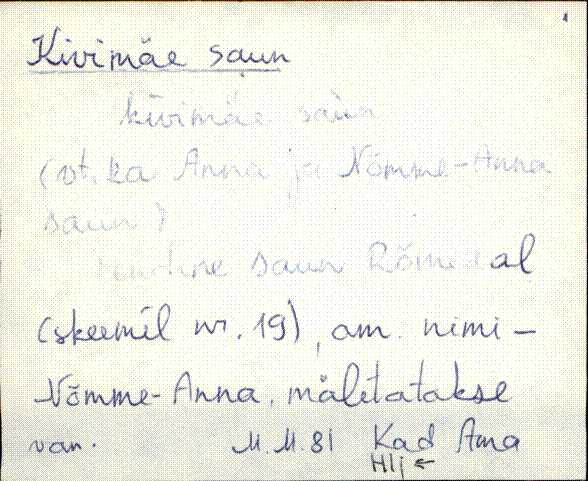 Kivimäe saun
kivimäe saùn
(vt. ka Anna ja Nõmme-Anna
saun)
saun
(skeemil nr. 19), am. nimi -
Nõmme-Anna, mäletatakse
van. M.M.81 Kad Ama
Hlj ←